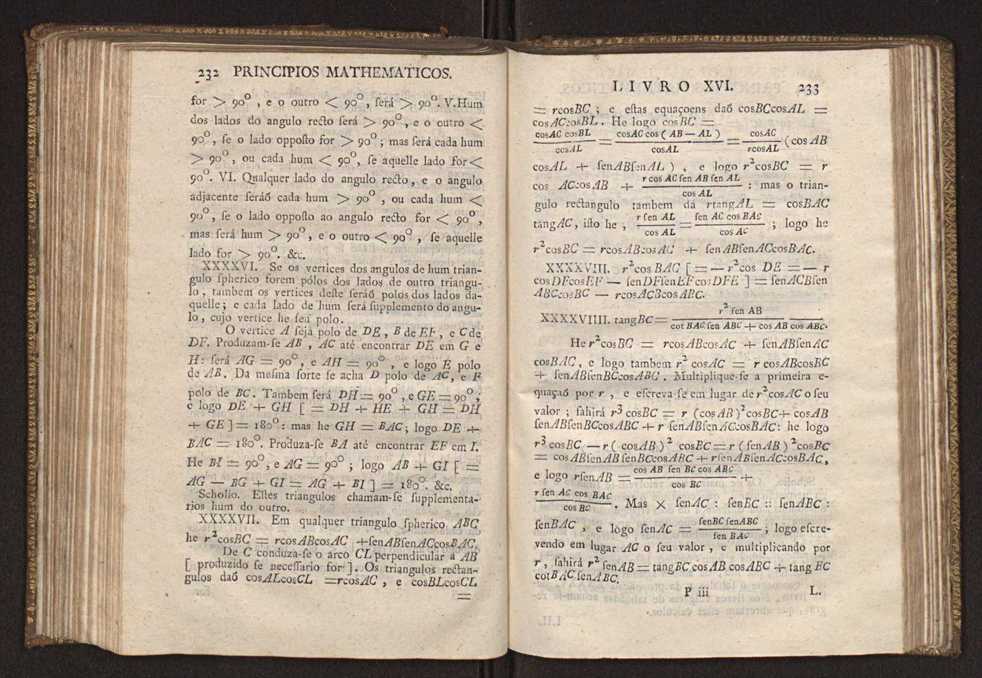 232 PRINCIPIOS MATHEMATICOS.
for > 90°, e o outro < 90°, ſerá > 90°. V. Hum
dos lados do angulo recto ſerá > 90°, e o outro <
90°, ſe o lado oppoſto for > 90°; mas ſerá cada hum
> 90°, ou cada hum < 90°, ſe aquelle lado for <
90°. VI. Qualquer lado do angulo recto, e o angulo
adjacente ſeráõ cada hum > 90°, ou cada hum <
90°, ſe o lado oppoſto ao angulo recto for < 90°,
mas ſerá hum > 90°, e o outro < 90°, ſe aquelle
lado for > 90°. &c.
XXXXVI. Se os vertices dos angulos de hum trian-
gulo ſpherico forem pólos dos lados de outro triangu-
lo, tambem os vertices deſte ſeráõ polos dos lados da-
quelle; e cada lado de hum ſerá ſupplemento do angu-
lo, cujo vertice he ſeu polo.
O vertice A ſeja polo de DE, B de EF, e C de
DF. Produzam-ſe AB, AC até encontrar DE em G e
H: ſerá AG = 90°, e AH = 90°, e logo E polo
de AB. Da meſma ſorte ſe acha D polo de AC, e F
polo de BC. Tambem ſerá DH = 90°, e GE = 90°,
e logo DE + GH [ = DH + HE + GH = DH
+ GE ] = 180°: mas he GH = BAC; logo DE +
BAC = 180°. Produza-ſe BA até encontrar EF em I.
He BI = 90°, e AG = 90°; logo AB + GI [ =
AG — BG + GI = AG + BI ] = 180°. &c.
Scholio. Eſtes triangulos chamam-ſe ſupplementa-
rios hum do outro.
XXXXVII. Em qualquer triangulo ſpherico ABC
he r²cosBC = rcosABcosAC + ſenABſenACcosBAC.
De C conduza-ſe o arco CL perpendicular a AB
[ produzido ſe neceſſario for ]. Os triangulos rectan-
gulos daõ cosALcosCL = rcosAC, e cosBLcosCL
=
LIVRO XVI. 233
= rcosBC; e eſtas equaçoens daõ cosBCcosAL =
cosACcosBL. He logo cosBC =
cosAC cosBL / cosAL = cosAC cos ( AB — AL ) / cosAL = cosAC / rcosAL (cos AB
cosAL + ſenABſenAL ), e logo r²cosBC = r
cos ACcosAB + r cos AC ſen AB ſen AL / cos AL : mas o trian-
gulo rectangulo tambem dá rtangAL = cosBAC
tangAC, iſto he, r ſen AL / cos AL = ſen AC cos BAC / cos AC ; logo he
r²cosBC = rcosABcosAC + ſenABſenACcosBAC.
XXXXVIII. r²cos BAC [ = — r²cos DE = — r
cosDFcosEF — ſenDFſenEFcosDFE ] = ſenACBſen
ABCcosBC — rcosACBcosABC.
XXXXVIIII. tangBC = r² ſen AB / cot BAC ſen ABC + cos AB cos ABC.
He r²cosBC = rcosABcosAC + ſenABſenAC
cosBAC, e logo tambem r² cosAC = r cosABcosBC
+ ſenABſenBCcosABC. Multiplique-ſe a primeira e-
quaçaõ por r, e eſcreva-ſe em lugar de r²cosAC o ſeu
valor; ſahirá r³ cosBC = r (cosAB)²cosBC + cosAB
ſenABſenBCcosABC + r ſenABſenACcosBAC: he logo
r³ cosBC — r ( cosAB )² cosBC = r ( ſenAB )²cosBC
= cosABſenABſenBCcosABC + rſenABſenACcosBAC,
e logo rſenAB = cos AB ſen BC cos ABC / cos BC +
r ſen AC cos BAC / cos BC . Mas × ſenAC : ſenBC :: ſenABC :
ſenBAC, e logo ſenAC = ſenBC ſenABC / ſen BAC ; logo eſcre-
vendo em lugar AC o ſeu valor, e multiplicando por
r, ſahirá r² ſenAB = tang BC cos AB cos ABC + tang BC
cotBACſenABC.
P iii L.